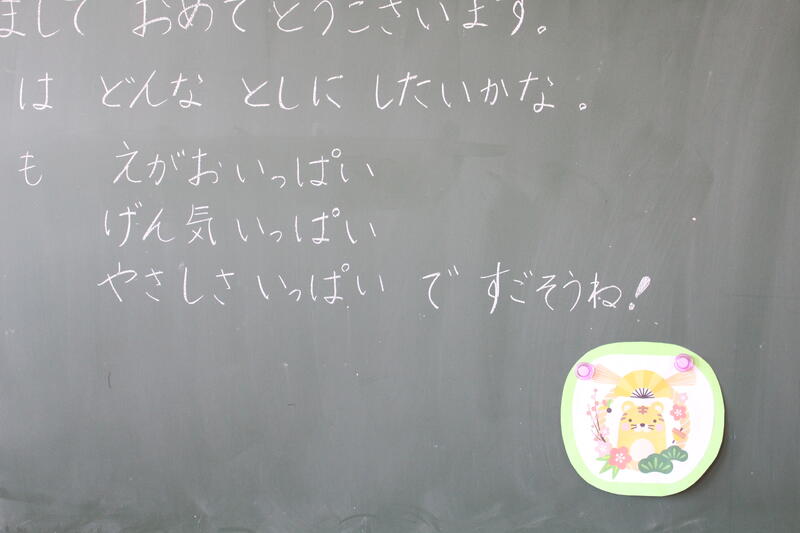 まして おめでとうございます。
は どんな としに したいかな。
も えがおいっぱい
げん気いっぱい
やさしさいっぱい で すごそうね!